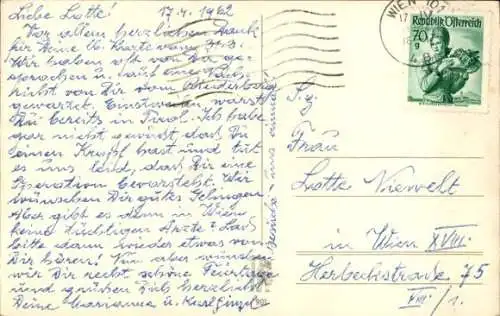 17.4.1962
Liebe Lotte!
Vor allem herzlichen Dank
für Deine lb. Karte vom
Wir haben oft von Dir ge-
sprochen u. auf eine Nach-
richt von Dir vom
gewartet. Einstweilen warst
Du bereits in Tirol. Ich habe
gar nicht gewusst, dass Du
einen Kropf hast und tut
es uns leid, dass Dir eine
Operation bevorsteht. Wir
wünschen Dir gutes Gelingen.
Aber gibt es denn in Wien
keine tüchtigen Ärzte? Lass
bitte dann wieder etwas von
Dir hören! Nun aber wünschen
wir Dir recht schöne Feiertage
und grüßen Dich herzlichst
Deine Marianne u. Karl
uns einmal!
WIEN 101
17. IV
Republik Österreich
70
g
S.g.
Frau
Lotte
in Wien XVIII.
Herbeckstraße 75
VIII/1.